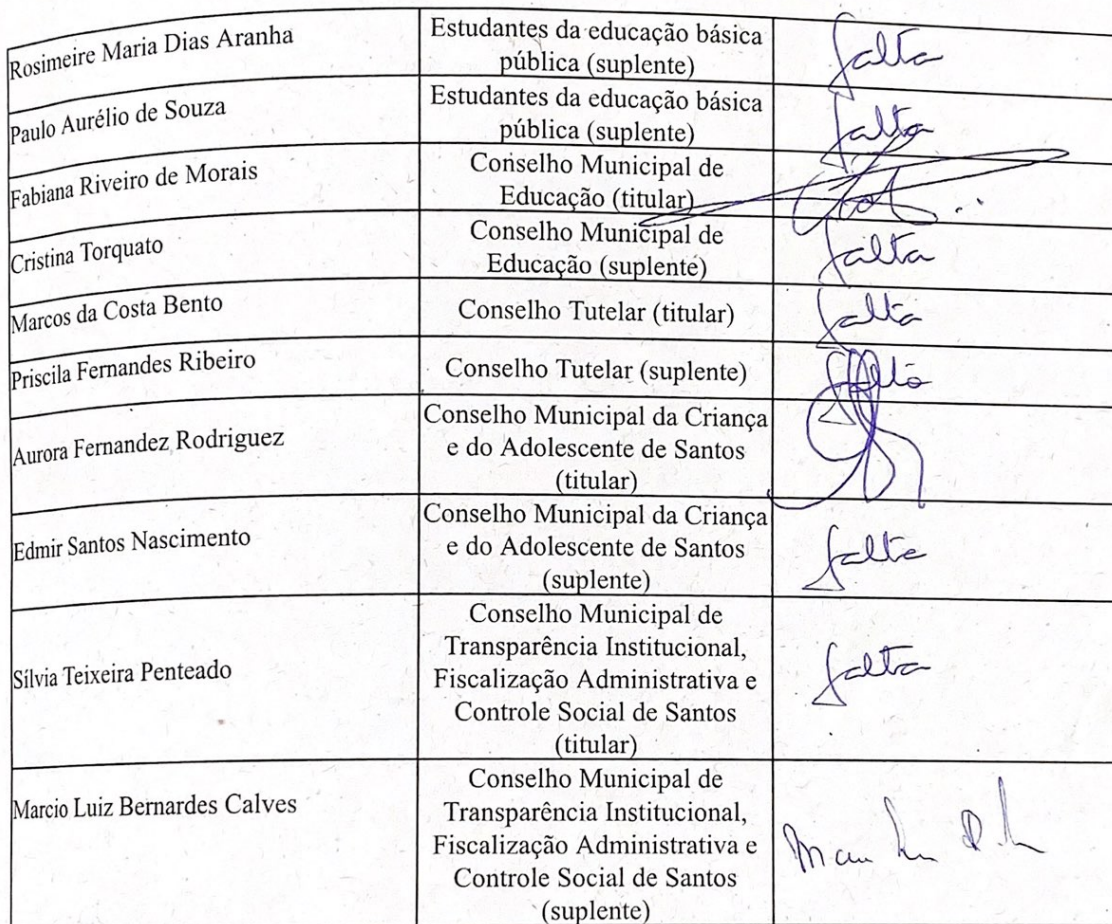 Rosimeire Maria Dias Aranha
Estudantes da educação básica
pública (suplente)
falta
Paulo Aurélio de Souza
Estudantes da educação básica
pública (suplente)
falta
Fabiana Riveiro de Morais
Conselho Municipal de
Educação (titular)
Cristina Torquato
Conselho Municipal de
Educação (suplente)
falta
Marcos da Costa Bento
Conselho Tutelar (titular)
falta
Priscila Fernandes Ribeiro
Conselho Tutelar (suplente)
falta
Aurora Fernandez Rodriguez
Conselho Municipal da Criança
e do Adolescente de Santos
(titular)
Edmir Santos Nascimento
Conselho Municipal da Criança
e do Adolescente de Santos
(suplente)
falta
Silvia Teixeira Penteado
Conselho Municipal de
Transparência Institucional,
Fiscalização Administrativa e
Controle Social de Santos
(titular)
falta
Marcio Luiz Bernardes Calves
Conselho Municipal de
Transparência Institucional,
Fiscalização Administrativa e
Controle Social de Santos
(suplente)